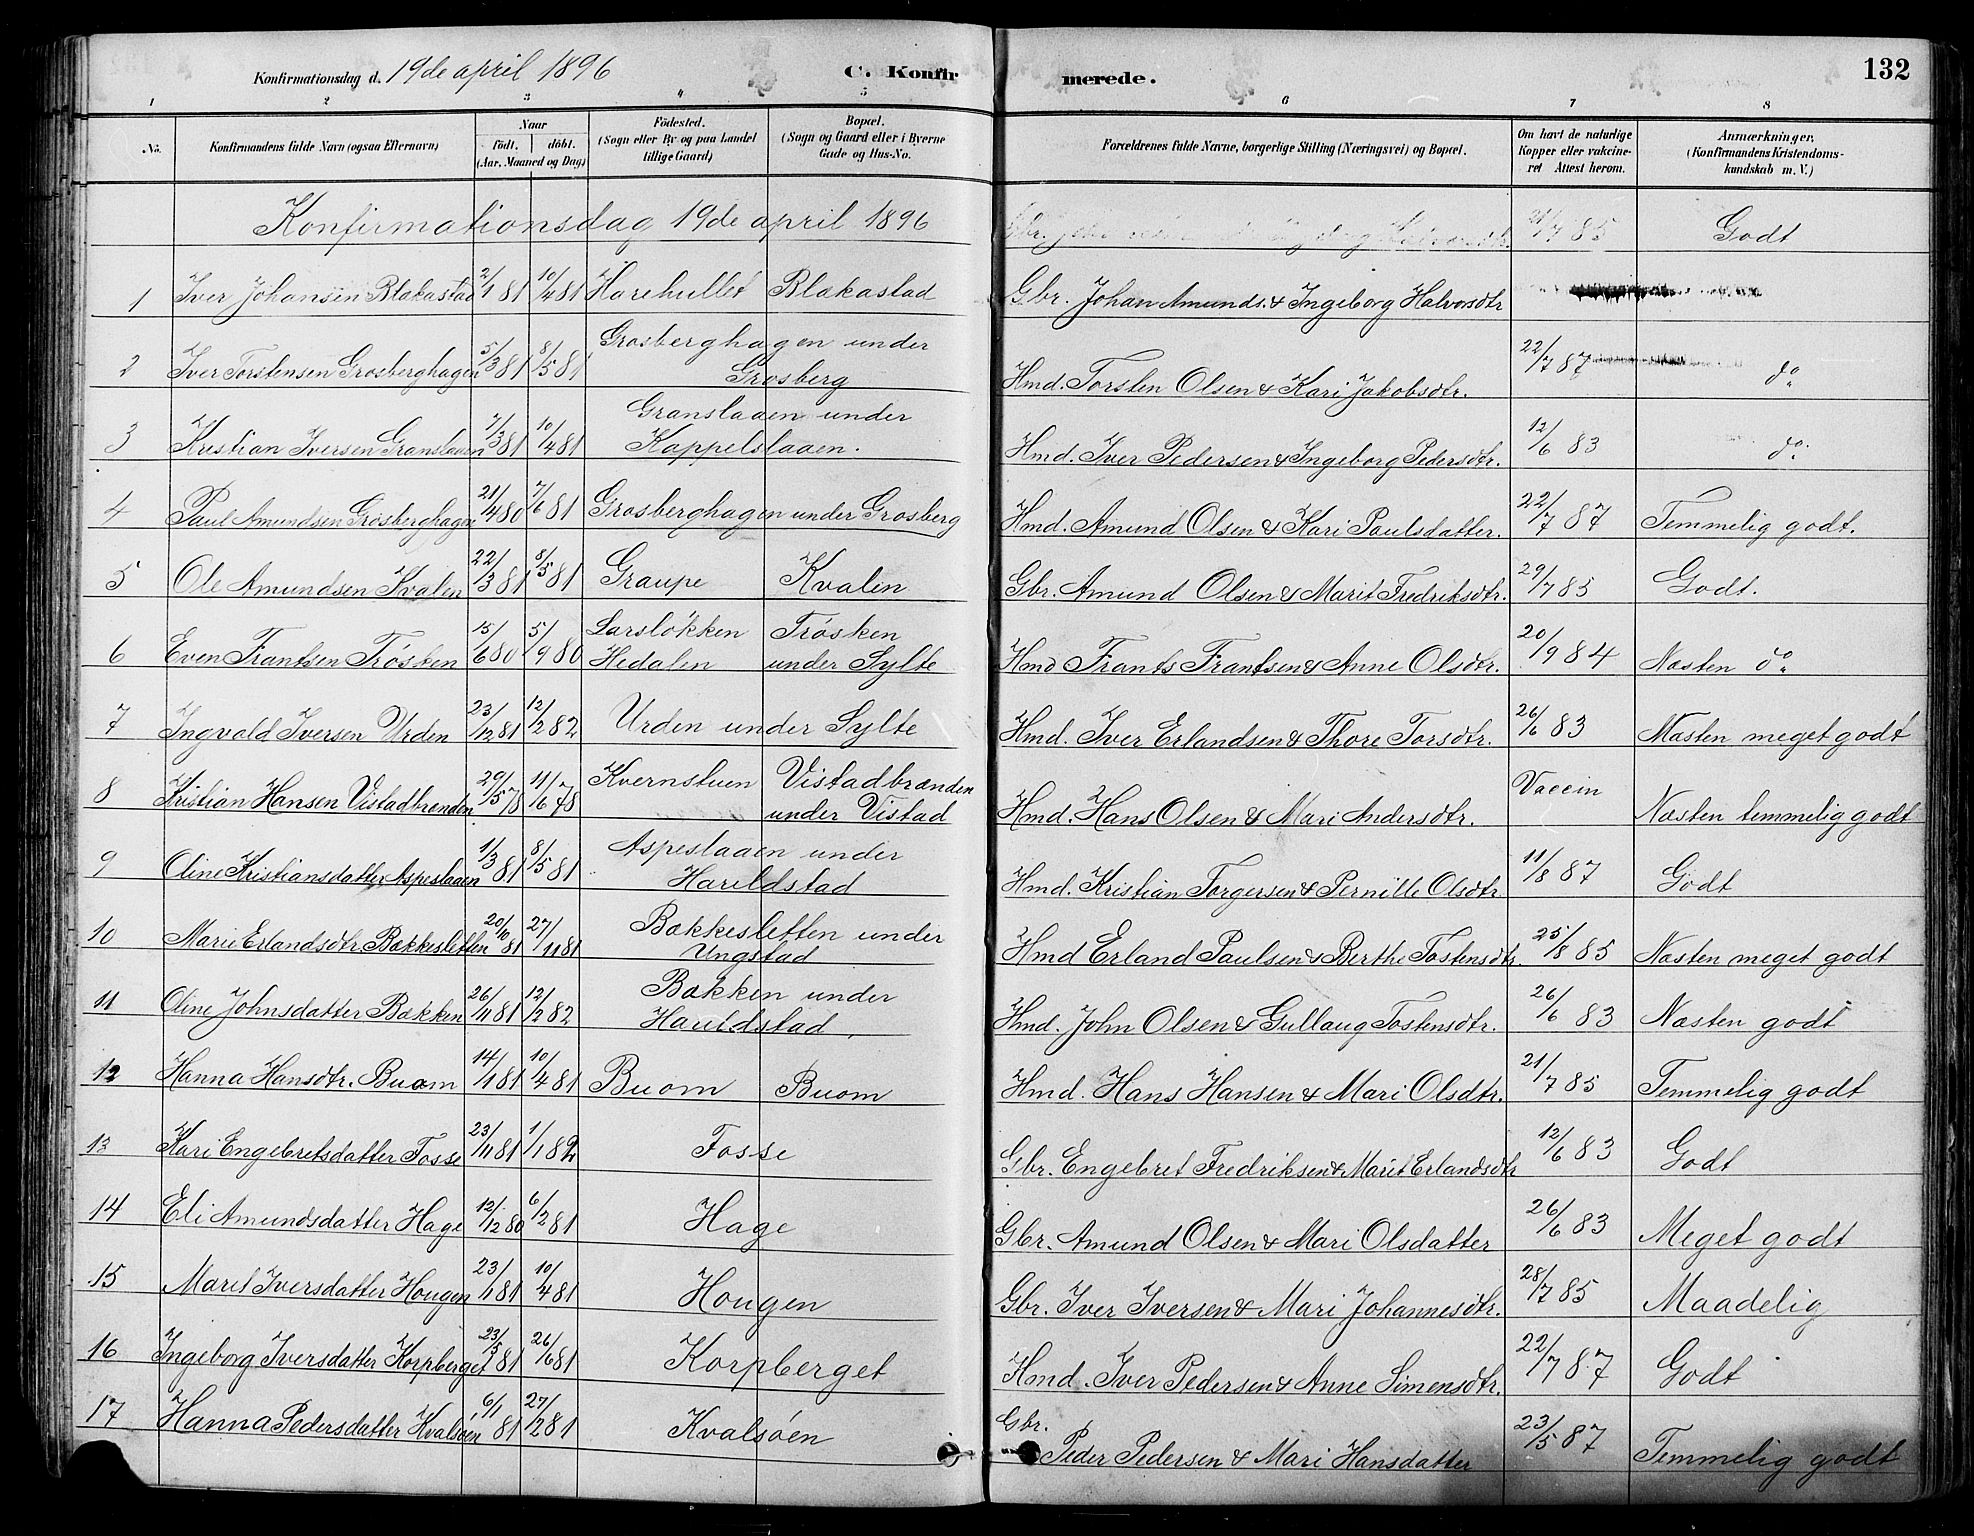 Konfirmationsdag d. 19de april 1896 C. Konfir merede. 132
1 2 3 4 5 6 7 8
No. Konfirmandens fulde Navn (ogsaa Efternavn) Naar födt. döbt. (Aar, Maaned og Dag) Födested. (Sogn eller By og paa Landet tillige Gaard) Bopæl. (Sogn og Gaard eller i Byerne Gade og Hus-No. Forældrenes fulde Navne, borgerlige Stilling (Næringsvei) og Bopæl. Om havt de naturlige Kopper eller vakcineret Attest herom. Anmærkninger, (Konfirmandens Kristendomskundskab m. V.)
Konfirmationsdag 19de april 1896 21/7 85 Godt
1 Iver Johansen Blakastad 2/1 81 10/4 81 Harehullet Blakastad Gbr. Johan Amunds. & Ingeborg Halvorsdtr
2 Iver Torstensen Grosberghagen 5/3 81 8/5 81 Grosberghagen under Grosberg Hmd. Torsten Olsen & Kari Jakobsdtr. 22/7 87 do
3 Kristian Iversen Granslaaen 7/3 81 10/4 81 Granslaaen under Kappelslaaen. Hmd. Iver Pedersen & Ingeborg Pedersdtr. 12/6 83 do.
4 Paul Amundsen Grosberghagen 21/4 80 7/6 81 Grosberghagen under Grosberg Hmd. Amund Olsen & Kari Paulsdatter. 22/7 87 Temmelig godt.
5 Ole Amundsen Kvalen 22/3 81 8/5 81 Graupe Kvalen Gbr. Amund Olsen & Marit Fredriksdtr. 29/7 85 Godt.
6 Even Frantsen Trösken 15/6 80 5/9 80 Larslökken Hedalen Trösken under Sylte Hmd Frants Frantsen & Anne Olsdtr. 20/9 84 Næsten do
7 Ingvald Iversen Urden 23/12 81 12/2 82 Urden under Sylte Hmd. Iver Erlandsen & Thore Torsdtr. 26/6 83 Næsten meget godt
8 Kristian Hansen Vistadbrænden 29/5 78 11/6 78 Kvernstuen Vistadbrænden under Vistad Hmd. Hans Olsen & Mari Andersdtr. Vaccin Næsten temmelig godt
9 Oline Kristiansdatter Aspeslaaen 1/3 81 8/5 81 Aspeslaaen under Harildstad Hmd. Kristian Torgersen & Pernille Olsdtr 11/8 87 Godt
10 Marie Erlandsdtr. Bakkesletten 20/10 81 27/11 81 Bakkesletten under Ungstad Hmd Erland Paulsen & Berthe Tostensdtr 25/8 85 Næsten meget godt
11 Oline Johnsdatter Bakken 26/11 81 12/2 82 Bakken under Harildstad Hmd. John Olsen & Gullaug Tostensdtr. 26/6 83 Næsten godt
12 Hanna Hansdtr. Buom 14/1 81 10/4 81 Buom Buom Hmd. Hans Hansen & Mari Olsdtr. 21/7 85 Temmelig godt
13 Kari Engebretsdatter Fosse 23/11 81 1/1 82 Fosse Gbr. Engebret Fredriksen & Marit Erlandsdtr 12/6 83 Godt
14 Eli Amundsdatter Hage 12/12 80 6/2 81 Hage Gbr. Amund Olsen & Mari Olsdatter 26/6 83 Meget godt
15 Marit Iversdatter Hougen 23/1 81 10/4 81 Hougen Gbr. Iver Iversen & Mari Johannesdtr. 28/7 85 Maadelig
16 Ingeborg Iversdatter Korpberget 23/5 81 26/6 81 Korpberget Hmd. Iver Pedersen & Anne Simensdtr. 22/7 87 Godt
17 Hanna Pedersdatter Kvalsöen 6/1 81 27/2 81 Kvalsöen Gbr. Peder Pedersen & Mari Hansdatter 23/5 87 Temmelig godt